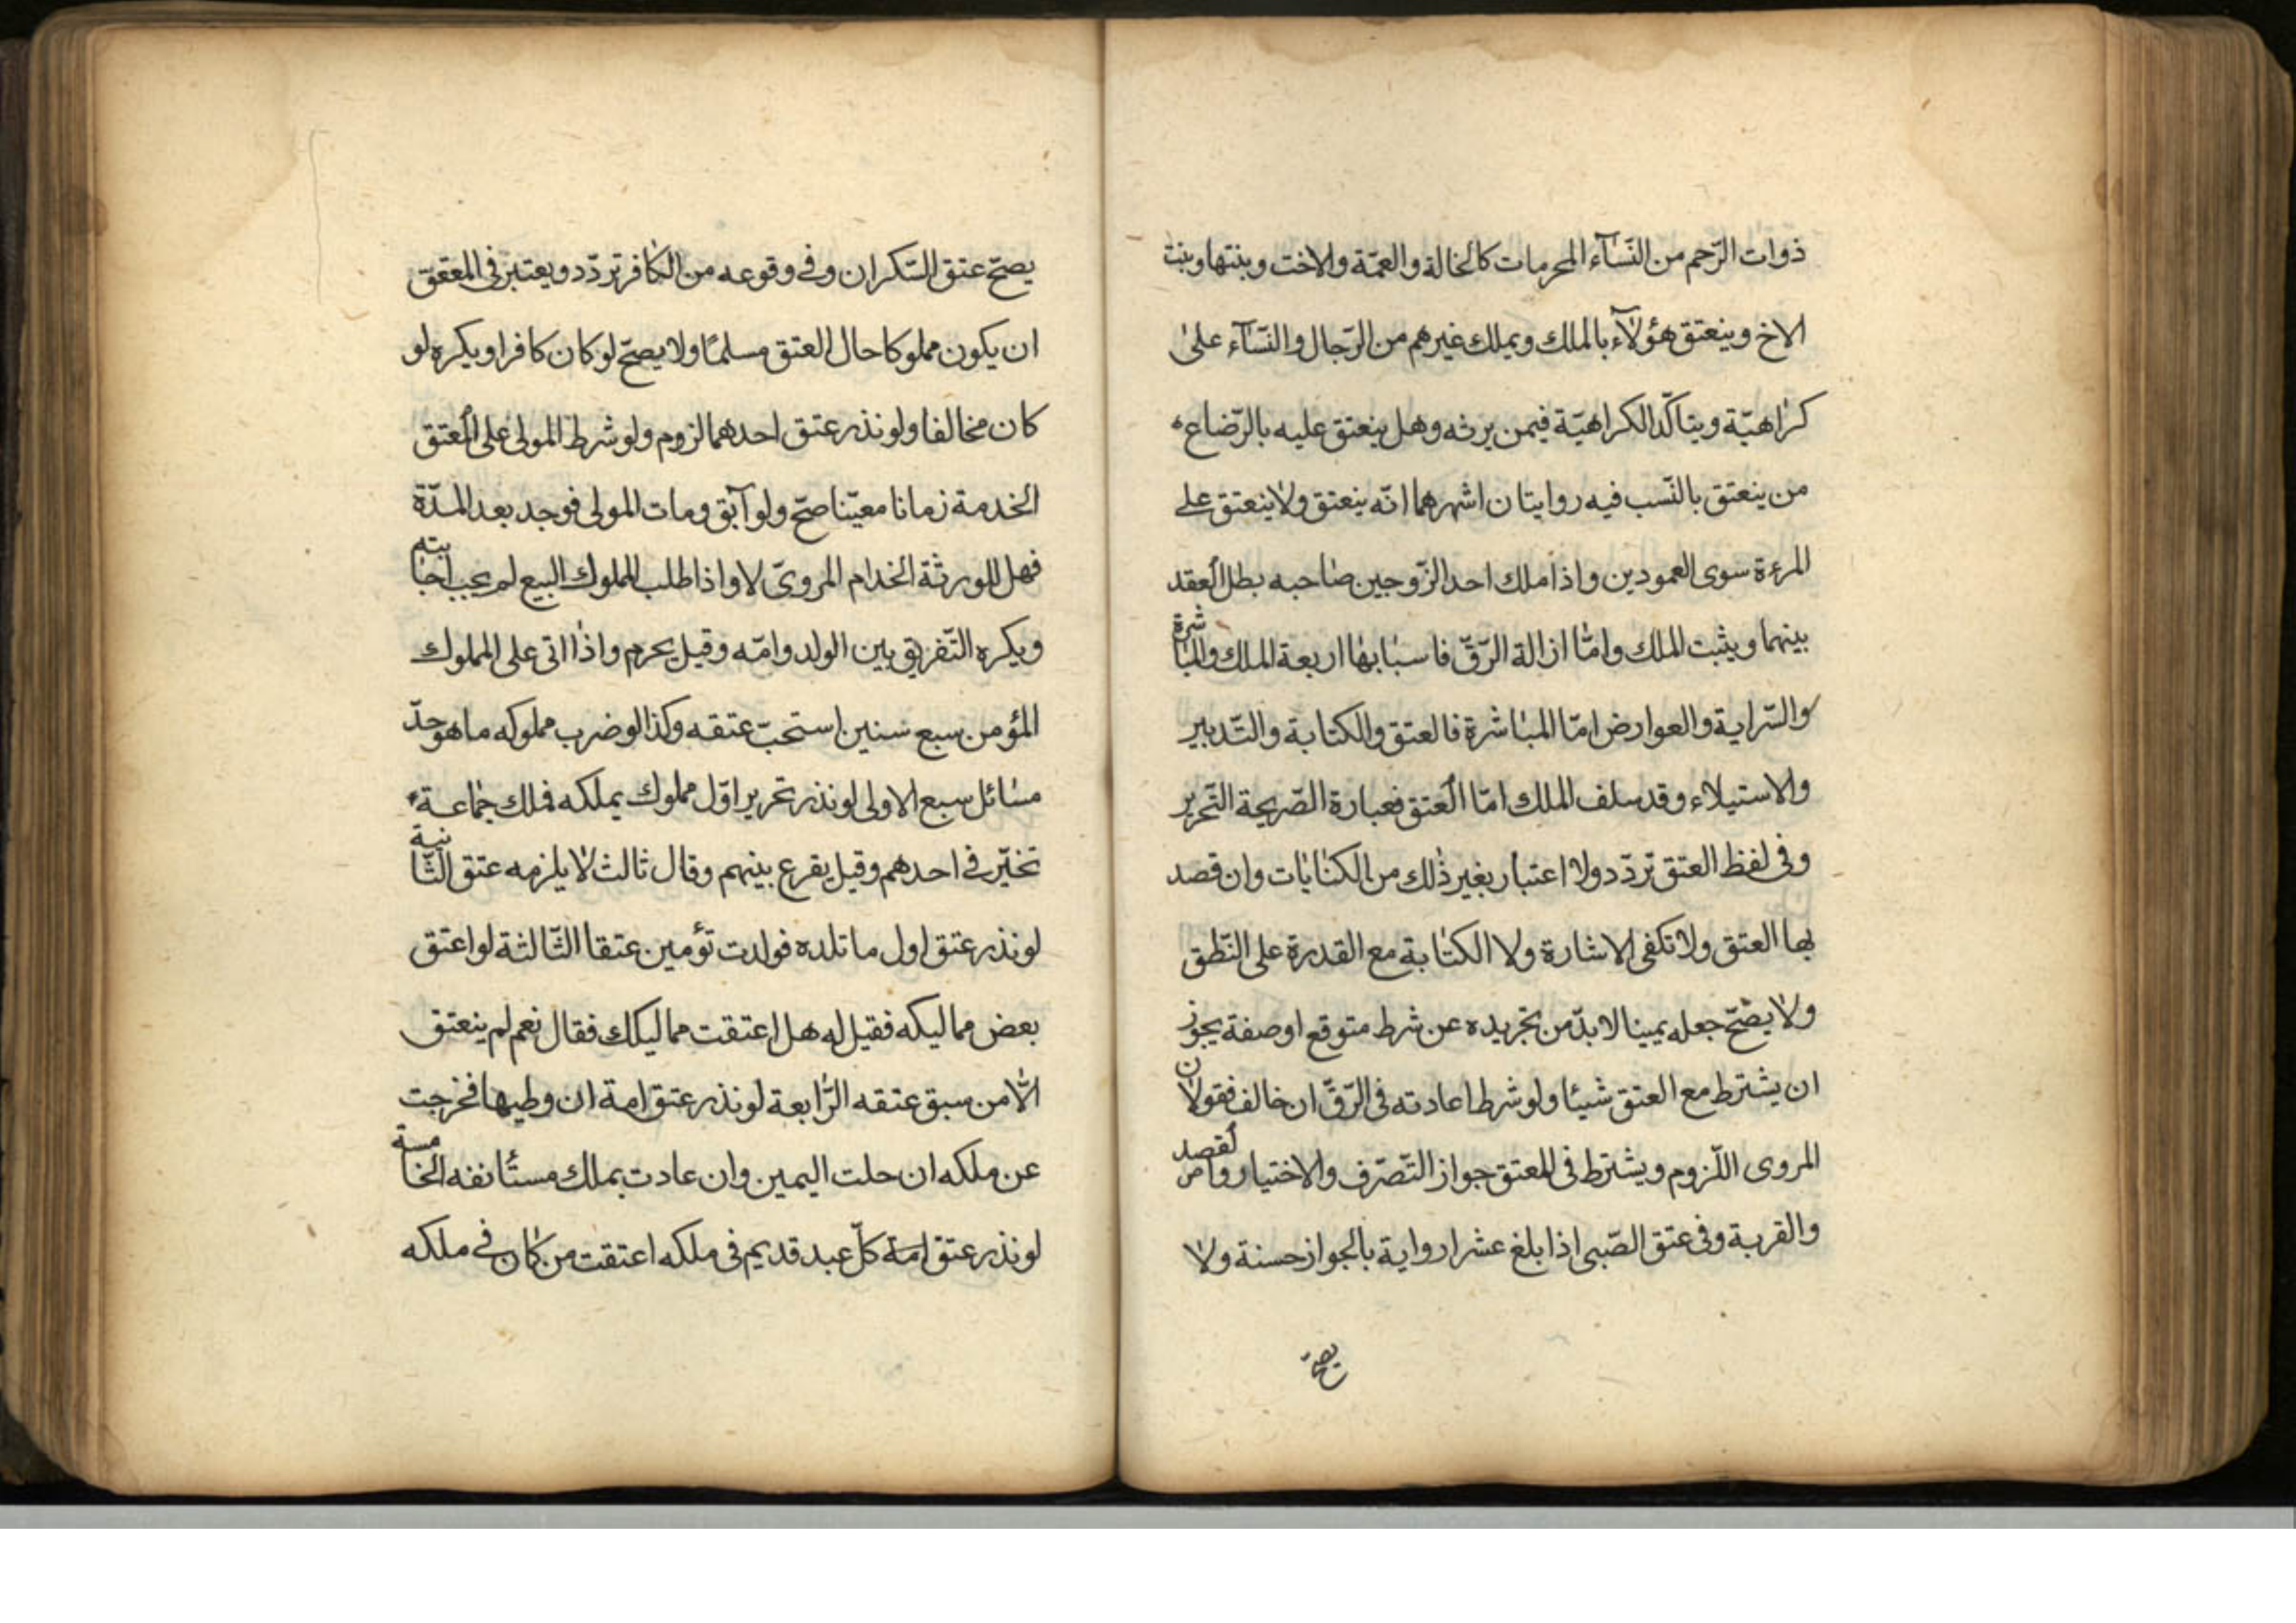 ذوات الرّحم من النّسآء المحرمات كالخالة والعمّة والاخت وبنتها وبنت
الاخ وينعتق هؤلآء بالملك ويملك غيرهم من الرّجال والنّسآء على
كراهيّة ويتاكّد الكراهيّة فيمن يرثه وهل ينعتق عليه بالرّضاع
من ينعتق بالنّسب فيه روايتان اشهرهما انّه ينعتق ولا ينعتق على
المرءة سوى العمودين واذا ملك احد الزّوجين صاحبه بطل العقد
بينهما ويثبت الملك وامّا ازالة الرّقّ فاسبابها اربعة الملك والمباشرة
والسّراية والعوارض امّا المباشرة فالعتق والكتابة والتّدبير
والاستيلاء وقد سلف الملك امّا العتق فعبارة الصّريحة التّحرير
وفى لفظ العتق تردّد ولا اعتبار بغير ذلك من الكنايات وان قصد
بها العتق ولا تكفى الاشارة ولا الكتابة مع القدرة على النّطق
ولا يصّح جعله يمينا لا بدّ من تجريده عن شرط متوقع او صفة يجوز
ان يشترط مع العتق شيئا ولو شرط اعادته فى الرّقّ ان خالف فقولان
المروى اللّزوم ويشترط فى المعتق جواز التّصرّف والاختيار والقصد
والقربة وفى عتق الصّبى اذا بلغ عشرا رواية بالجواز حسنة ولا
يصحّ
يصحّ عتق السّكران وفى وقوعه من الكافر تردّد ويعتبر فى المعتق
ان يكون مملوكا حال العتق مسلمًا ولا يصحّ لو كان كافرا ويكره لو
كان مخالفا ولو نذر عتق احدهما لزوم ولو شرط المولى على المعتق
الخدمة زمانا معيّنا صحّ ولو آبق ومات المولى فوجد بعد المدّة
فهل للورثة الخدام المروىّ لا واذا طلب المملوك البيع لم يجب اجابته
ويكره التّفريق بين الولد وامّه وقيل يحرم واذا اتى على المملوك
المؤمن سبع سنين استحبّ عتقه وكذا لو ضرب مملوكه ما هو حدّ
مسائل سبع الاولى لو نذر تحرير اوّل مملوك يملكه فملك جماعة
تخيّر فى احدهم وقيل يقرع بينهم وقال ثالث لا يلزمه عتق الثّانية
لو نذر عتق اول ما تلده فولدت تؤمين عتقا الثّالثة لو اعتق
بعض مماليكه فقيل له هل اعتقت مماليكك فقال نعم لم ينعتق
الّا من سبق عتقه الرّابعة لو نذر عتق امة ان وطيها فخرجت
عن ملكه ان حلت اليمين وان عادت بملك مستانفه الخامسة
لو نذر عتق امة كلّ عبد قديم فى ملكه اعتقت من كان فى ملكه